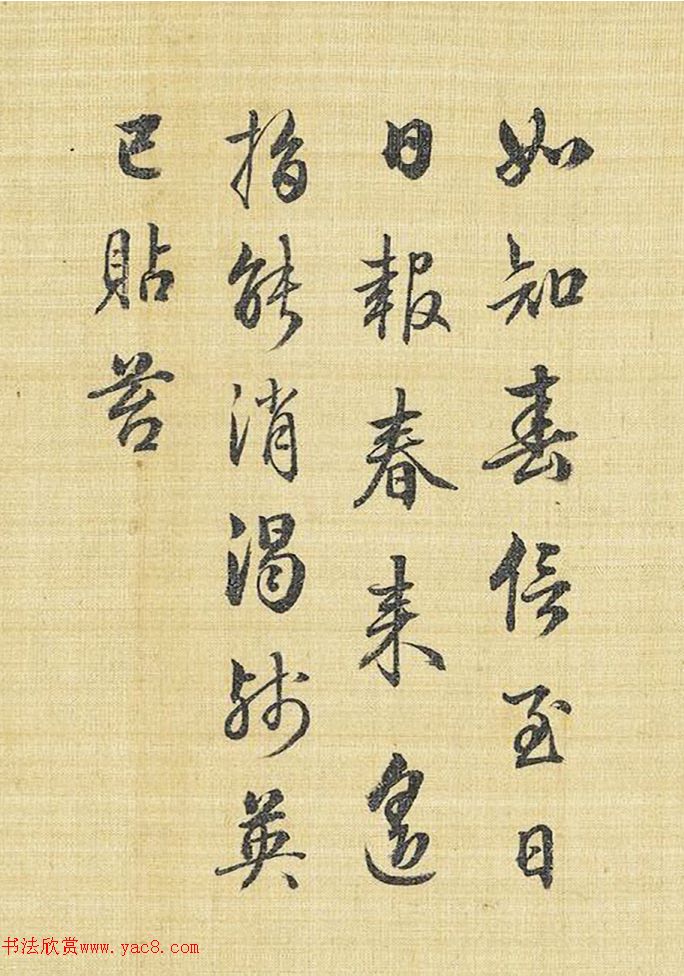 如知春信至日
日報春来遥
指能消渴殘英
已貼苔
书法欣赏www.yac8.com